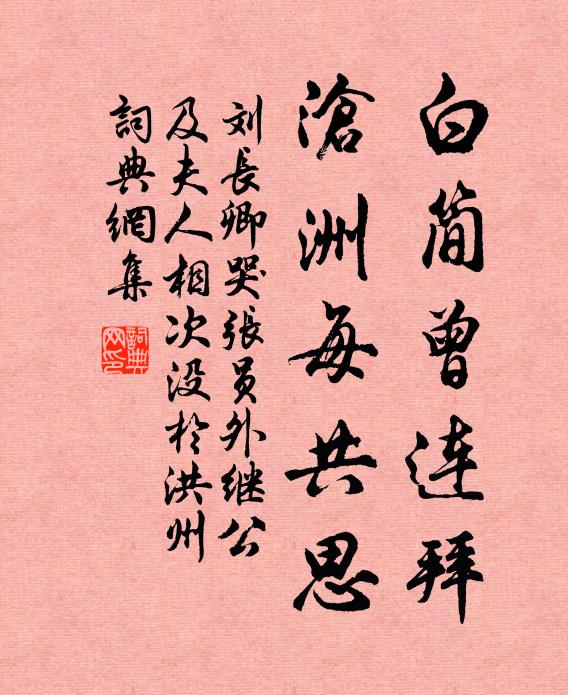 白简曾连拜
滄洲每共思
刘長卿哭張员外继公
及夫人相次没於洪州
詞典網集
詞典网印